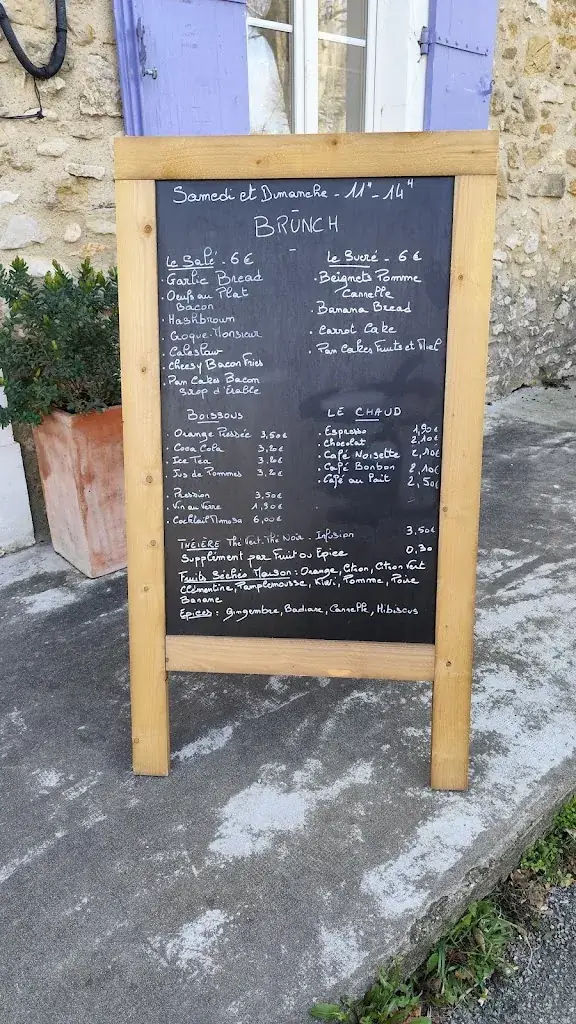 Samedi et Dimanche - 11H - 14H
-
BRUNCH
-
Le Salé - 6 €
. Garlic Bread
. Oeufs au Plat
Bacon
. Hashbrown
. Croque Monsieur
. Coleslaw
. Cheesy Bacon Fries
. Pan Cakes Bacon
Sirop d'Érable
Le Sucré - 6 €
. Beignets Pomme
Cannelle
. Banana Bread
. Carrot Cake
. Pan Cakes Fruits et Miel
BOISSONS
. Orange Pressée 3,50€
. Coca Cola 3,20€
. Ice Tea 3,20€
. Jus de Pommes 3,20€
. Pression 3,50€
. Vin au Verre 1,90€
. Cocktail Mimosa 6,00€
LE CHAUD
. Espresso 1,90€
. Chocolat 2,10€
. Café Noisette 2,10€
. Café Bonbon 2,10€
. Café au Lait 2,50€
THÉIÈRE Thé Vert. Thé Noir - Infusion 3,50€
Supplément par Fruit ou Epice 0,30
Fruits Séchés Maison : Orange, Citron, Citron Vert
Clémentine, Pamplemousse, Kiwi, Pomme, Poire
Banane
Epices : Gingembre, Badiane, Cannelle, Hibiscus